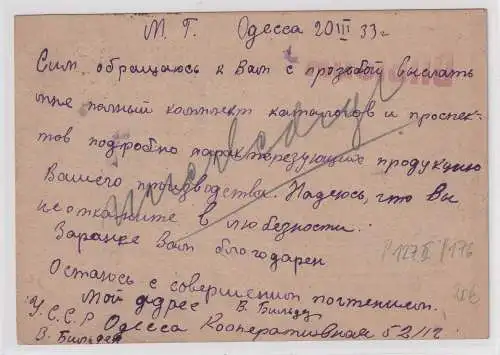 М. Г. Одесса 20 III 33 г
Сим обращаюсь к Вам с прозьбой выслать
мне полный комплект каталогов и проспек-
тов подробно характерезующих продукцию
Вашего производства. Надеюсь, что Вы
не откажите в любезности.
Заранее Вам благодарен
Остаюсь с совершеным почтением.
Мой адрес В. Бильдер
У.С.С.Р Одесса Кооперативная 52/12
В. Бильдер
erledigt